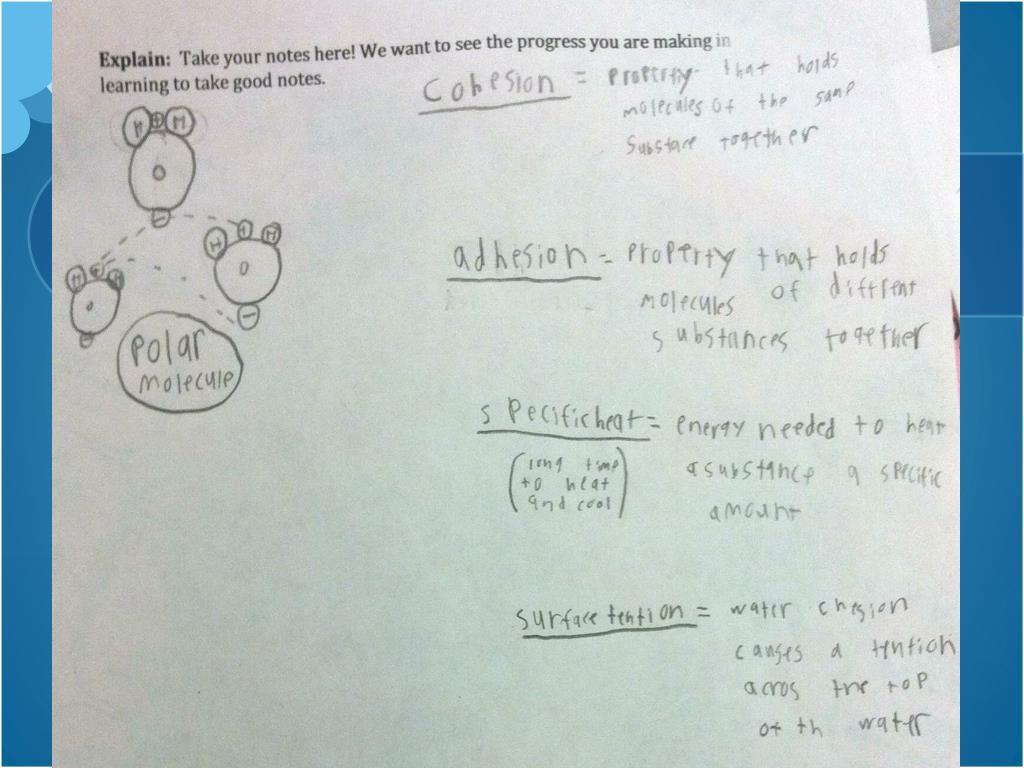 Explain: Take your notes here! We want to see the progress you are making in
learning to take good notes.
Cohesion = property that holds
molecules of the same
substace together
H + H
O
-
H + H
O
-
H + H
O
-
polar
molecule
adhesion = property that holds
molecules of different
substances together
specific heat = energy needed to heat
(long time
to heat
and cool)
a substance a specific
amount
surface tention = water chesion
causes a tention
acros the top
of th water